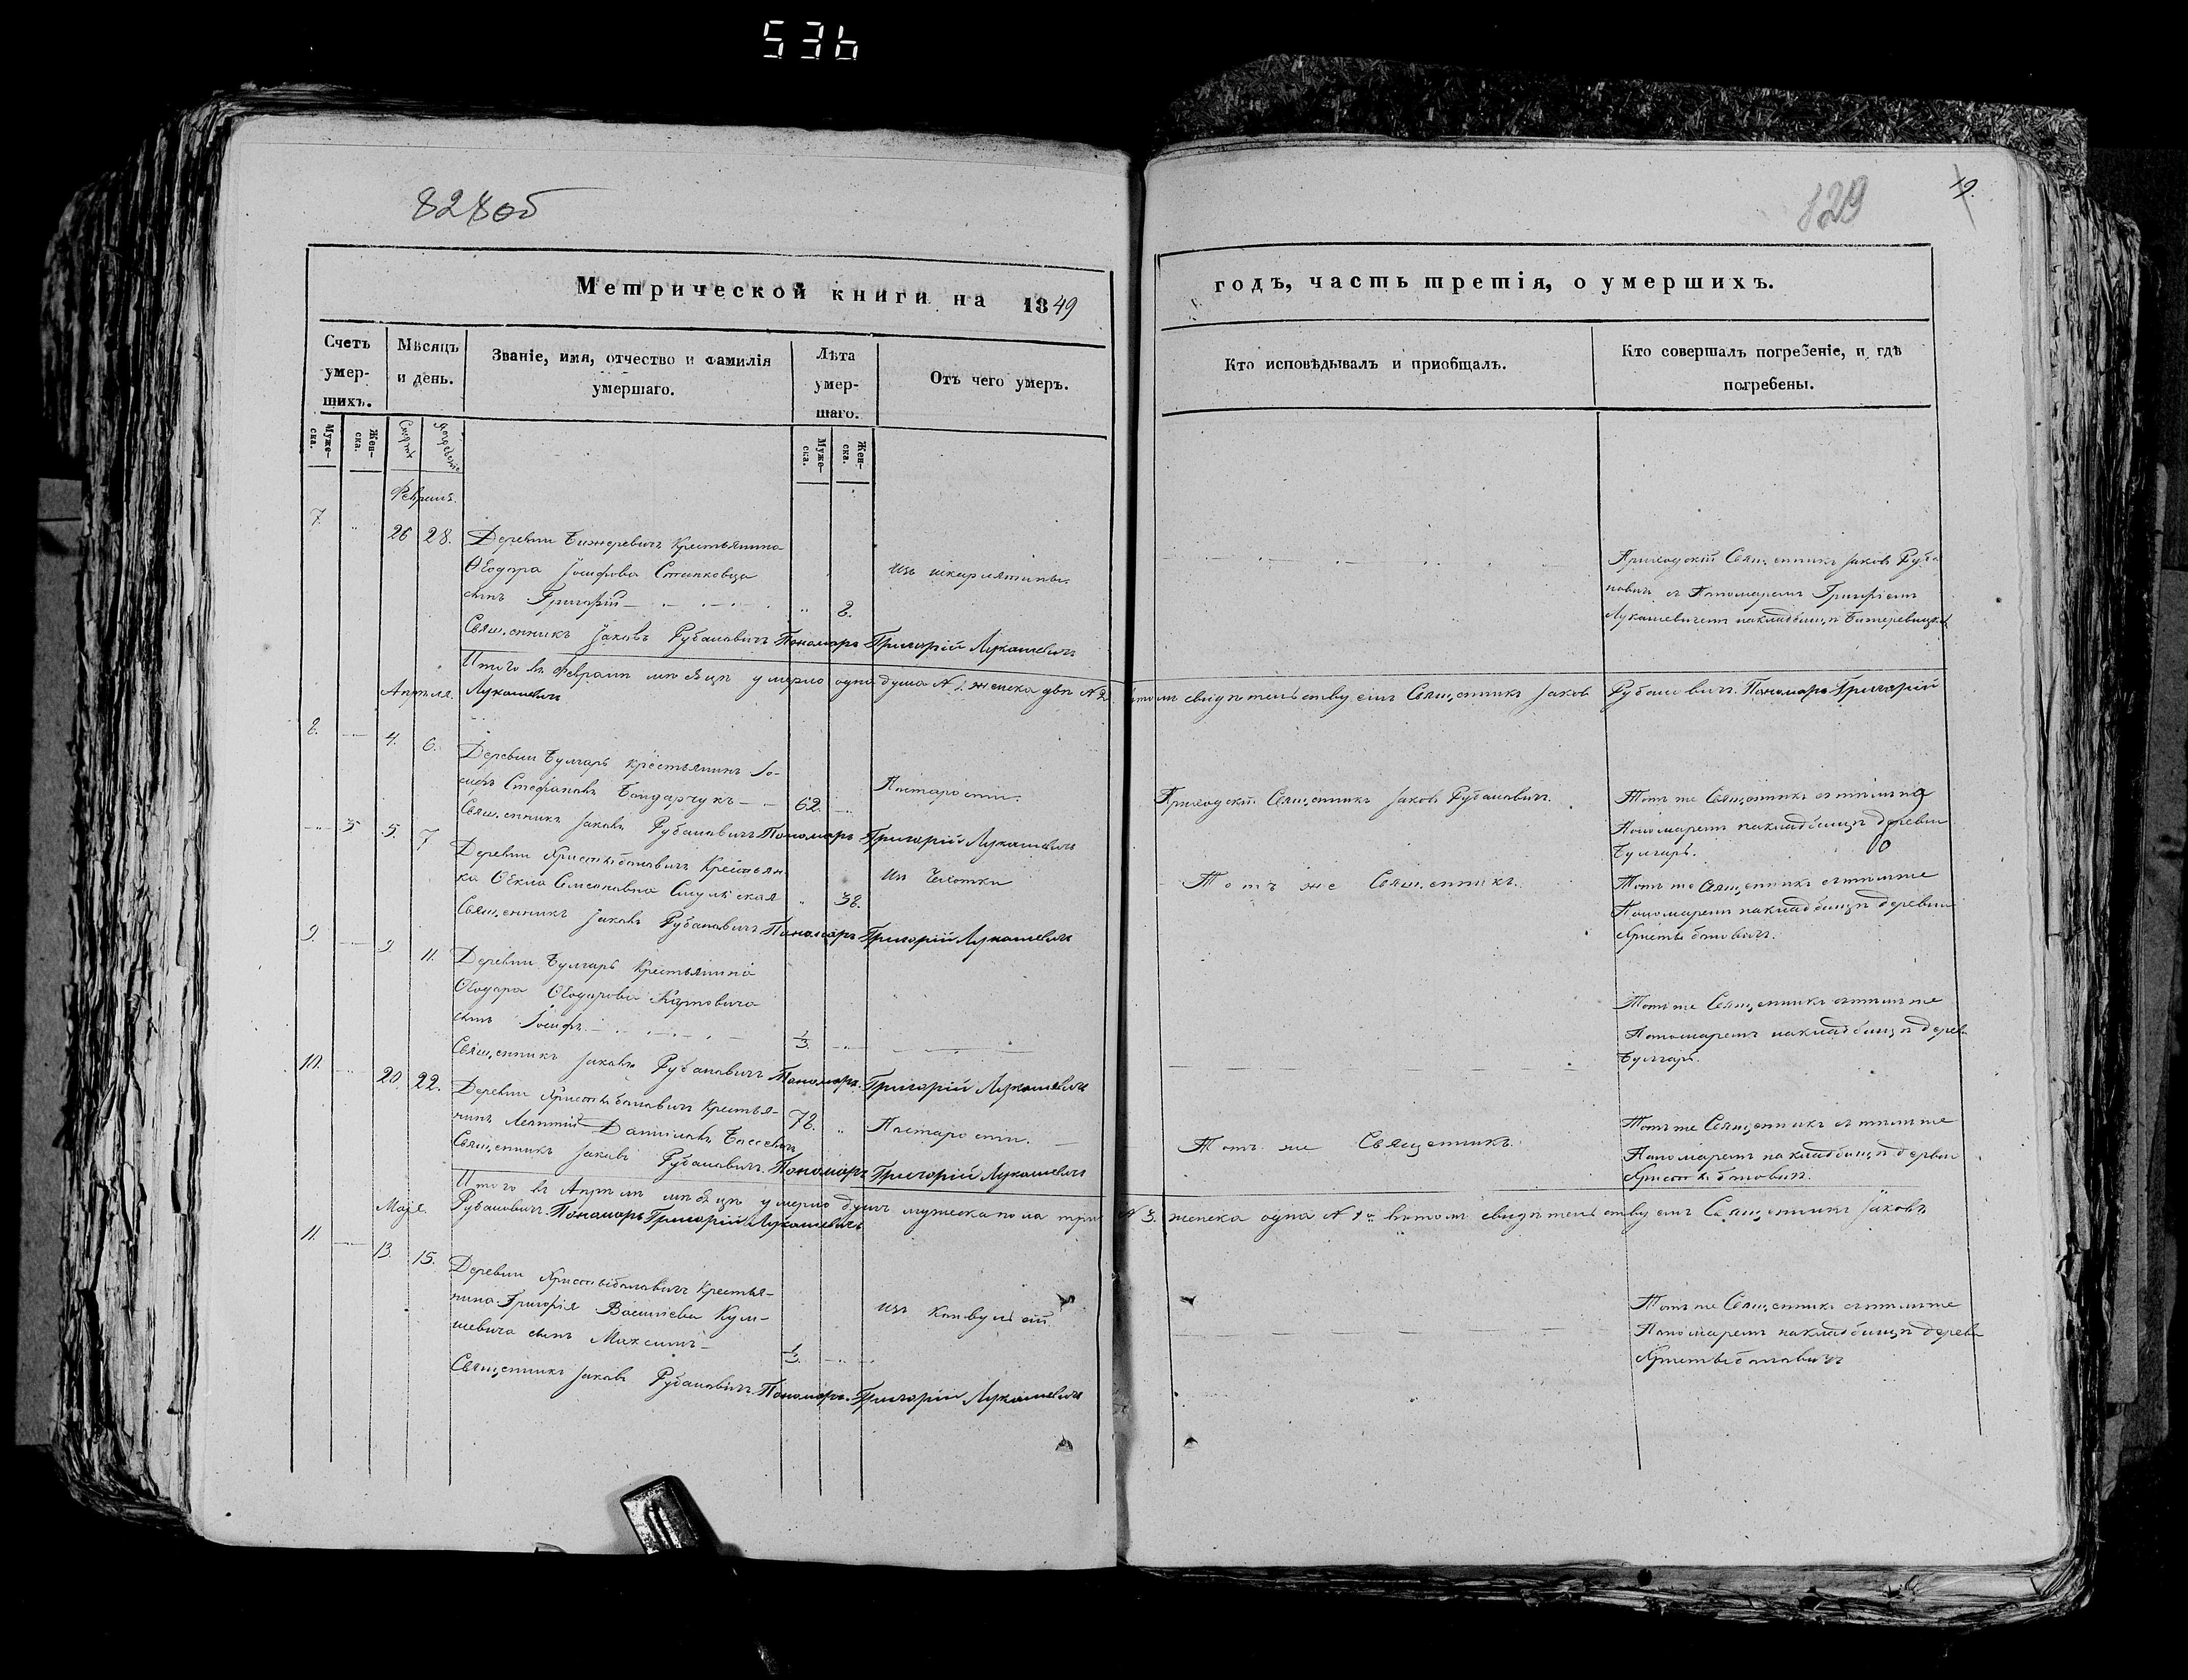 536
828об
829
Метрической книги на 1849
годъ, часть третія, о умершихъ.
Счетъ умер-шихъ.
Мѣсяцъ и день.
Званіе, имя, отчество и фамилія умершаго.
Лѣта умер-шаго.
Отъ чего умеръ.
Кто исповѣдывалъ и приобщалъ.
Кто совершалъ погребеніе, и гдѣ погребены.
Муже-ска.
Жен-ска.
Смерти
погребенія
Муже-ска.
Жен-ска.
7. 26 28. Деревни Крестьянина
Ѳеодора Іосифова
сынъ Григорій 8.
изъ шкарлятины.
Приходскій Священникъ Іаковъ Руба
новичъ съ Пономаремъ Григоріемъ
Лукашевичемъ на кладбищѣ
Священникъ Іаковъ Рубановичъ Пономарь Григорій Лукашевичъ
Итого въ Февралѣ мѣсяцѣ умерло одна душа N 1. женска двѣ N 2 въ томъ свидѣтельствуемъ Священникъ Іаковъ Рубановичъ. Пономарь Григорій
Апреля. Лукашевичъ
8. 4. 6. Деревни Булгаръ крестьянинъ Іо-
сифъ Стефановъ Бондарчукъ 62.
Постарости.
Приходскій Священникъ Іаковъ Рубановичъ.
Тотъ же Священникъ съ тѣмъ же
Пономаремъ на кладбищѣ деревни
Булгаръ.
Священникъ Іаковъ Рубановичъ Пономарь Григорій Лукашевичъ
3 5. 7 Деревни Христыболовичъ Крестьян
ка Ѳекла Семеновна 38.
изъ Чахотки
Тотъ же Священникъ.
Тотъ же Священникъ съ тѣмъ же
Пономаремъ на кладбищѣ деревни
Христыболовичъ.
Священникъ Іаковъ Рубановичъ Пономарь Григорій Лукашевичъ
9. 9 11. Деревни Булгаръ Крестьянина
Ѳеодора Ѳеодорова Карповича
сынъ Іосифъ 1/3.
Тотъ же Священникъ съ тѣмъ же
Пономаремъ на кладбищѣ дерев
Булгаръ.
Священникъ Іаковъ Рубановичъ Пономарь Григорій Лукашевичъ
10. 20. 22. Деревни Христыболовичъ Крестья-
нинъ Леонтій Даниловъ 78.
Постарости.
Тотъ же Священникъ.
Тотъ же Священникъ съ тѣмъ же
Пономаремъ на кладбищѣ деревни
Христыболовичъ.
Священникъ Іаковъ Рубановичъ. Пономарь Григорій Лукашевичъ
Итого въ Апрѣлѣ мѣсяцѣ умерло душъ мужеска пола три N 3. женска одна N 1 въ томъ свидѣтельствуемъ Священникъ Іаковъ
Рубановичъ. Пономарь Григорій Лукашевичъ
11. 13. 15. Деревни Христыболовичъ Крестья-
нина Григорія Василіева
сынъ Максимъ 1/3.
изъ Конвульсій
Тотъ же Священникъ съ тѣмъ же
Пономаремъ на кладбищѣ дерев
Христыболовичъ
Священникъ Іаковъ Рубановичъ. Пономарь. Григорій Лукашевичъ